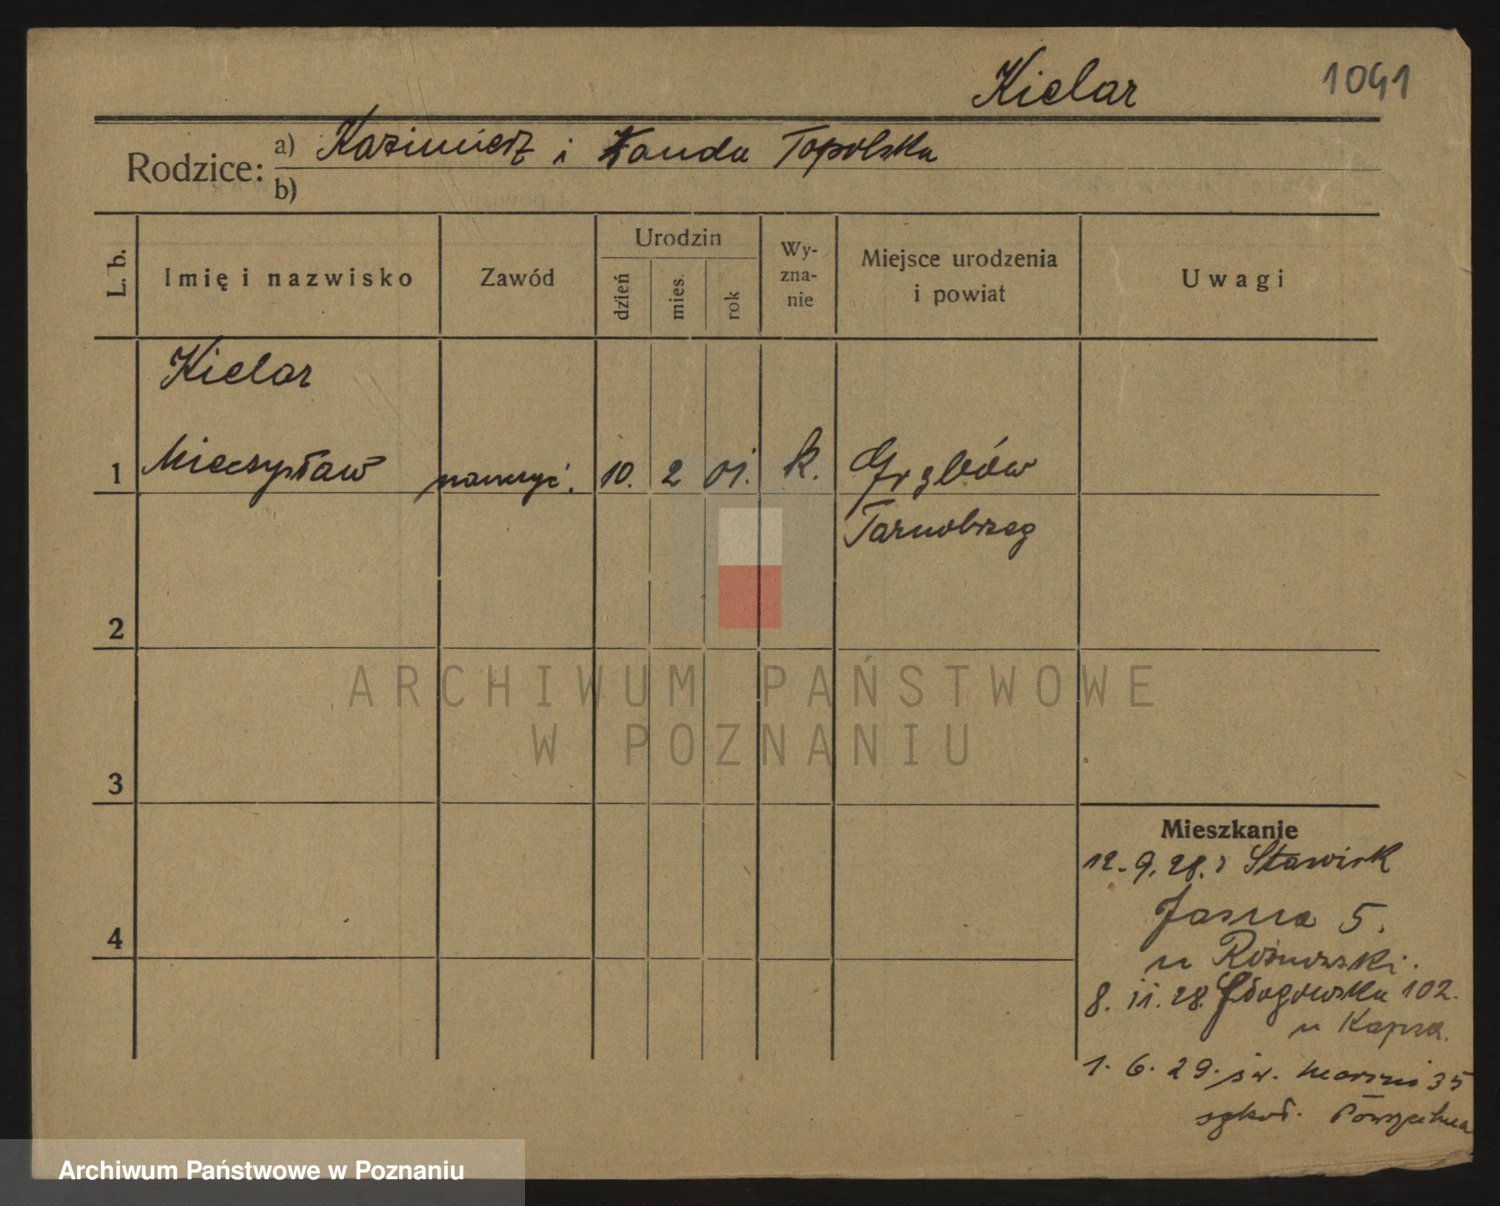 Kielar 1041
Rodzice: a) Kazimierz i Wanda Topolska
b)
L. b. Imię i nazwisko Zawód Urodzin dzień mies. rok Wyznanie Miejsce urodzenia i powiat Uwagi
Kielar
1 Mieczysław nauczyć. 10. 2 01. k. Grębów
Tarnobrzeg
2
3
4
Mieszkanie
12.9.28.
Jasna 5.
u Rożnowski.
8.11.28. Głogowska 102.
u
1.6.29. św. Marcin 35
szkoł.
ARCHIWUM PAŃSTWOWE
W POZNANIU
Archiwum Państwowe w Poznaniu